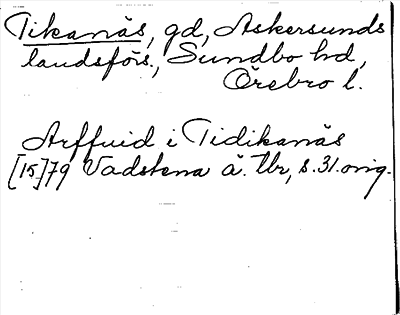 Tikanäs, gd, Askersunds
landsförs., Sundbo hd,
Örebro l.
Arffuid i Tidikanäs
[15]79 Vadstena ä. tbr, s. 31. orig.